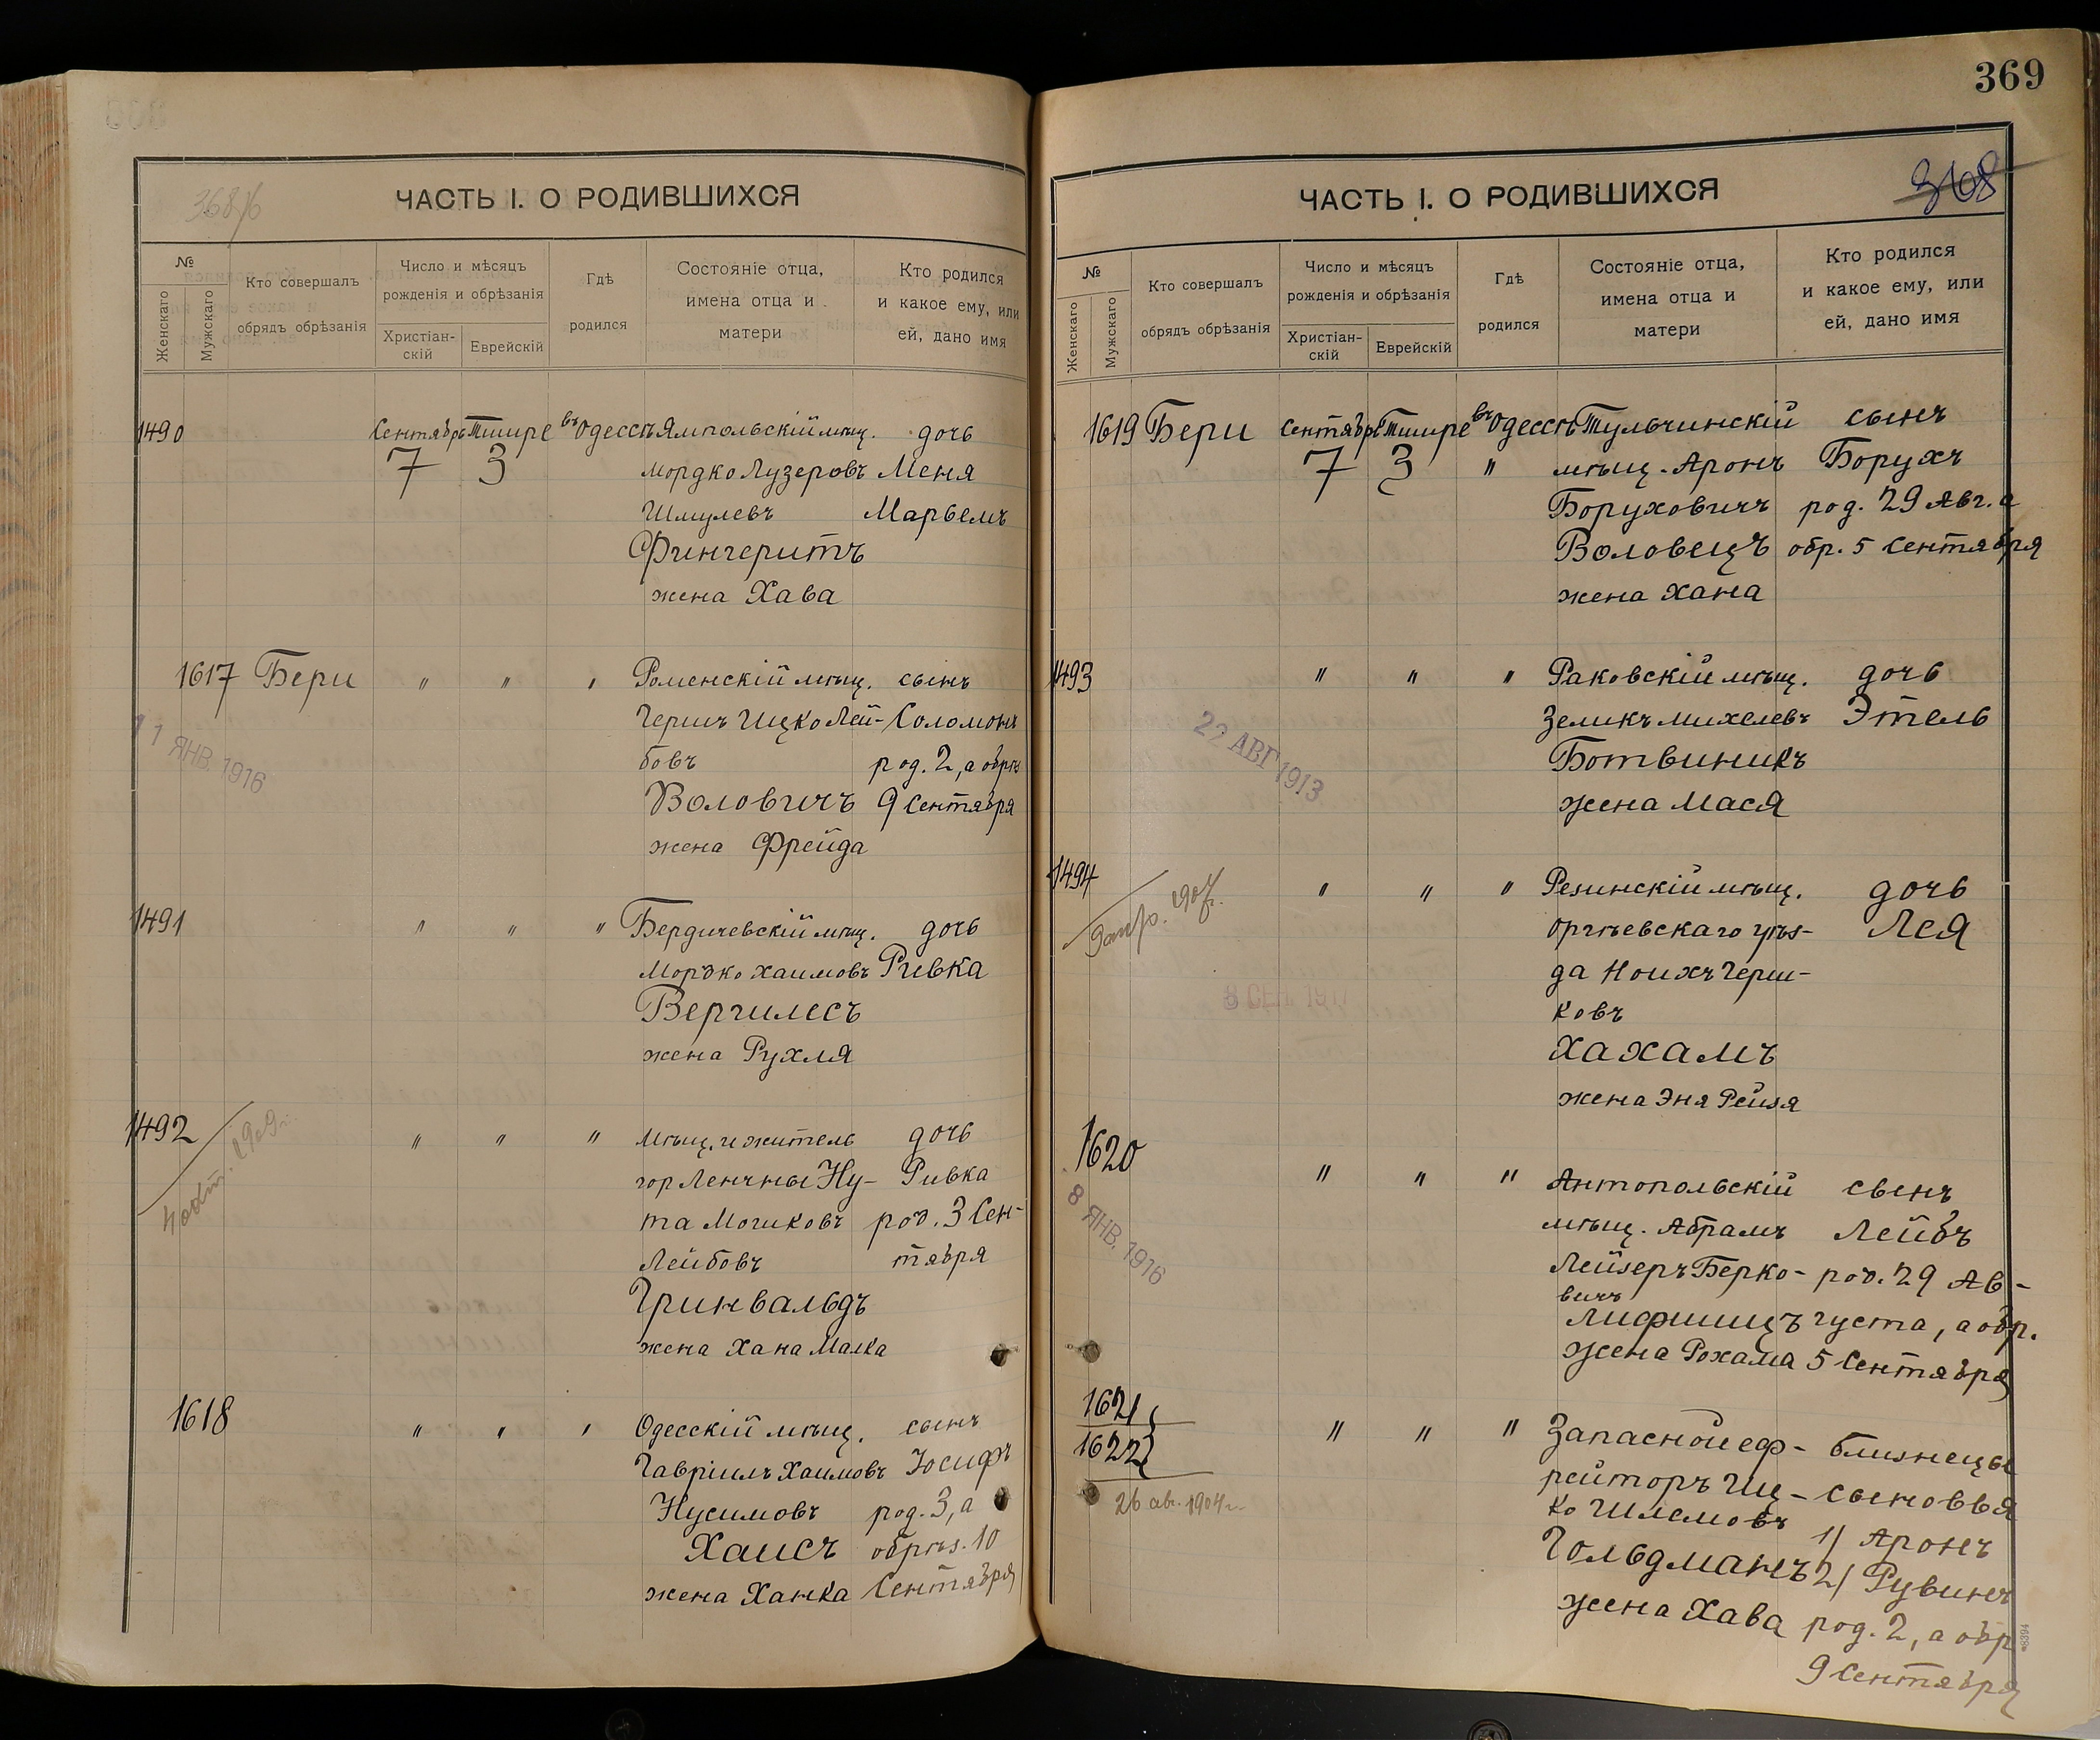 369
368
ЧАСТЬ I. О РОДИВШИХСЯ
№
Женскаго
Мужскаго
Кто совершалъ
обрядъ обрѣзанія
Число и мѣсяцъ
рожденія и обрѣзанія
Христіан-
скій
Еврейскій
Гдѣ
родился
Состояніе отца,
имена отца и
матери
Кто родился
и какое ему, или
ей, дано имя
1490 Сентябрь Тишре въ Одессѣ Ямпольскій мѣщ. дочь
7 3 Мордко Лузеровъ Меня
Шмулевъ Марьемъ
Фингеритъ
жена Хава
1617 Бери " " " Роменскій мѣщ. сынъ
Гершъ Ицко Лей- Соломонъ
бовъ род. 2, а обрѣз
Воловичъ 9 Сентября
жена Фрейда
11 ЯНВ. 1916
1491 " " " Бердичевскій мѣщ. дочь
Мордко Хаимовъ Ривка
Вергилесъ
жена Рухля
1492 " " " мѣщ. и житель дочь
гор Ленчны Ну- Ривка
та Мошковъ род. 3 Сен-
Лейбовъ тября
Гринвальдъ
жена Хана Малка
1909
1618 " " " Одесскій мѣщ. сынъ
Гавріилъ Хаимовъ Іосифъ
Нусимовъ род. 3, а
Хаисъ обрѣз. 10
жена Ханка Сентября
ЧАСТЬ I. О РОДИВШИХСЯ
№
Женскаго
Мужскаго
Кто совершалъ
обрядъ обрѣзанія
Число и мѣсяцъ
рожденія и обрѣзанія
Христіан-
скій
Еврейскій
Гдѣ
родился
Состояніе отца,
имена отца и
матери
Кто родился
и какое ему, или
ей, дано имя
1619 Бери Сентябрь Тишре въ Одессѣ Тульчинскій сынъ
7 3 " мѣщ. Аронъ Борухъ
Боруховичъ род. 29 Авг. а
Воловецъ обр. 5 Сентября
жена Хана
1493 " " " Раковскій мѣщ. дочь
Зеликъ Михелевъ Этель
Ботвиникъ
жена Мася
22 АВГ 1913
1494 " " " Резинскій мѣщ. дочь
Оргѣевскаго уѣз- Лея
да Ноихъ Герш-
ковъ
Хахамъ
жена Эня Рейзя
1620 " " " Антопольскій сынъ
мѣщ. Абрамъ Лейбъ
Лейзеръ Берко- род. 29 Ав-
вичъ
Лифшицъ густа, а обр.
жена Рохама 5 Сентября
8 ЯНВ. 1916
1621
1622 " " " Запасной еф- близнецы
рейторъ Иц- сыновья
ко Шлемовъ 1/ Аронъ
Гольдманъ 2/ Рувинъ
жена Хава род. 2, а обр
9 Сентября
26 ав. 1904 г.